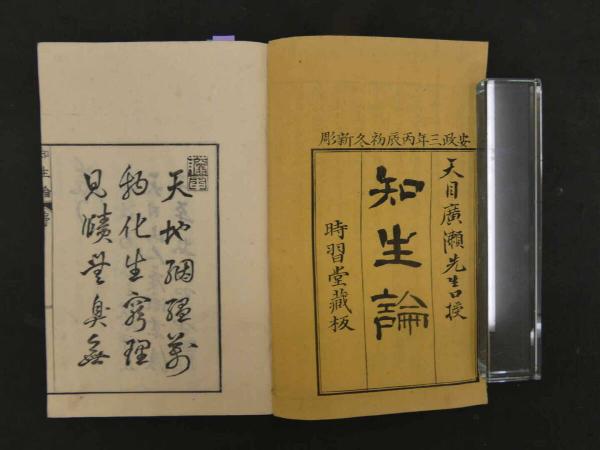 安政三年丙辰初冬新彫
天目廣瀬先生口授
知生論
時習堂藏板
天地絪縕萬
物化生窮理
見賾無臭無
知生論序